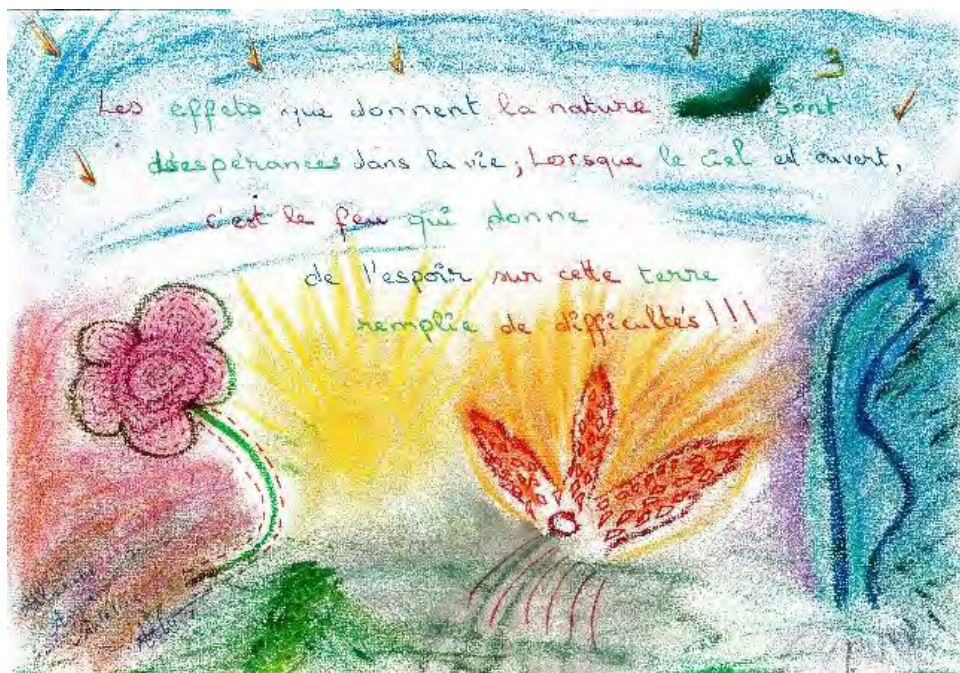 3
Les effets que donnent la nature sont
désespérances dans la vie; Lorsque le ciel est ouvert,
c'est le feu qui donne
de l'espoir sur cette terre
remplie de difficultés!!!